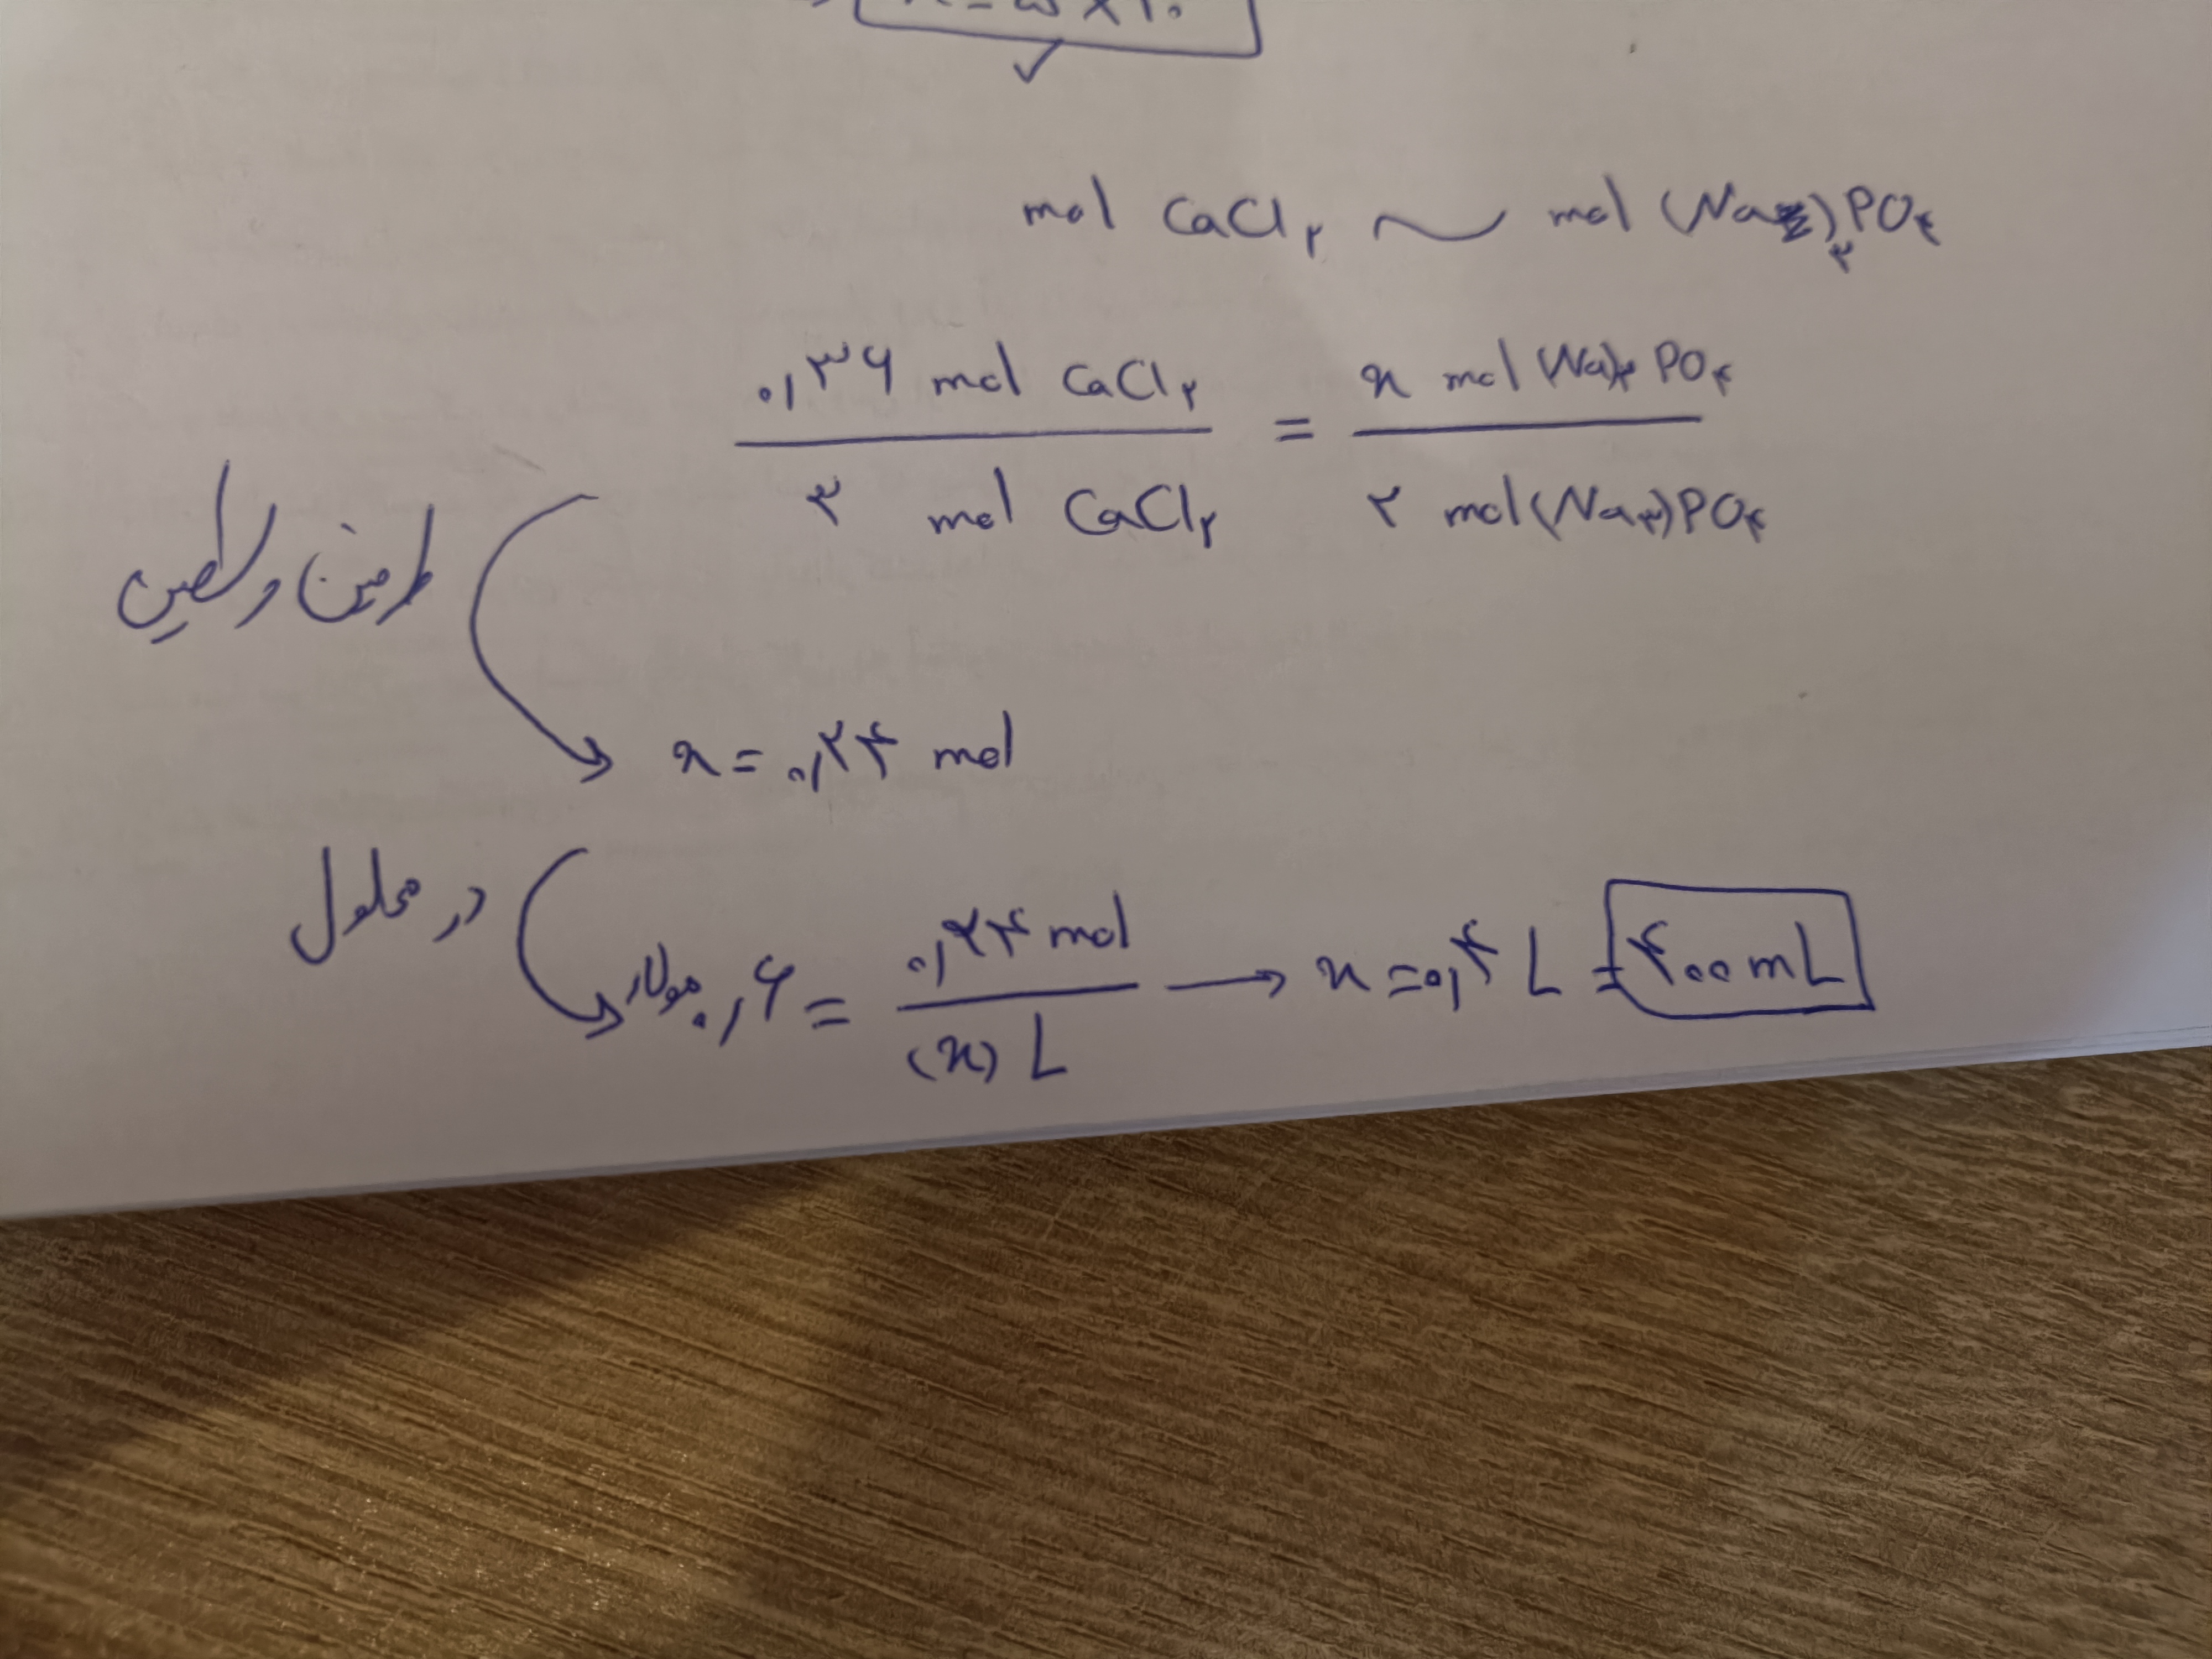 mol CaCl۲ ~ mol (Na)۳PO۴
۰,۳۶ mol CaCl۲ = x mol (Na)۳ PO۴
۳ mol CaCl۲ ۲ mol(Na۳)PO۴
طرفین وسطین
x = ۰,۲۴ mol
در محلول
۰,۶ مولار = ۰,۲۴ mol → x = ۰,۴ L = ۴۰۰ mL
(x) L